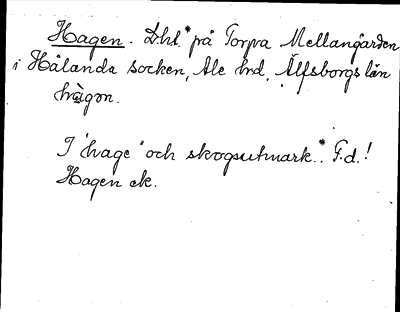 Hagen. D:hl.* på Torpra Mellangården
i Hålanda socken, Ale hd, Älfsborgs län
hàgən.
I "hage" och skogsutmark.* F.d.!
Hagen ek.